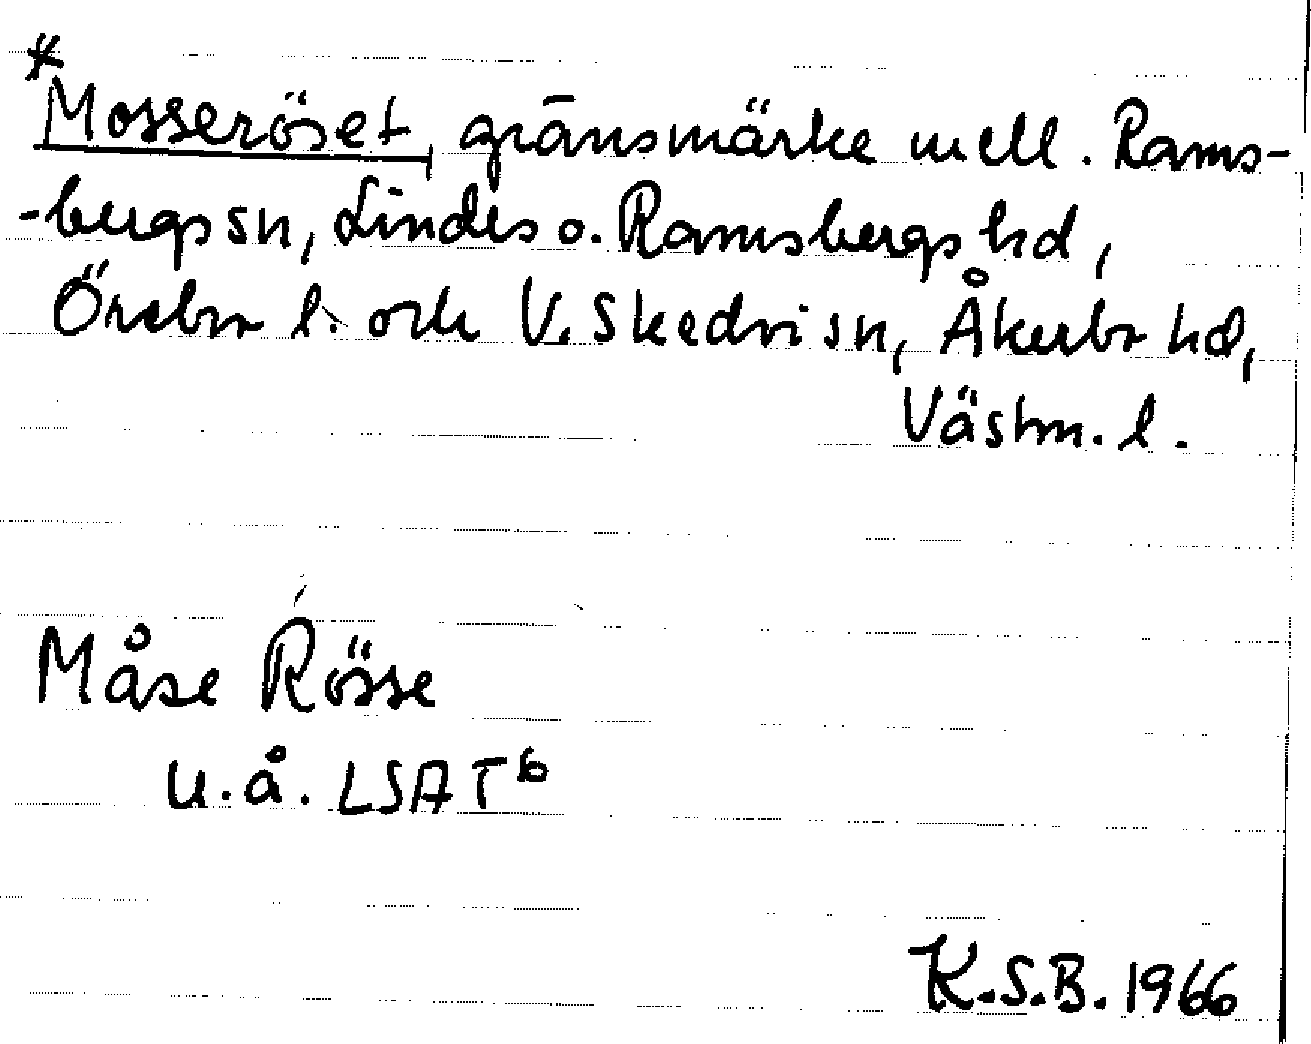 * Mosseröset, gränsmärke mell. Rams-
-bergs sn, Lindes o. Ramsbergs hd,
Örebro l. och V. Skedvi sn, Åkerbo hd,
Västm. l.
Måse Rösse
u.å. LSA T6
K.S.B. 1966